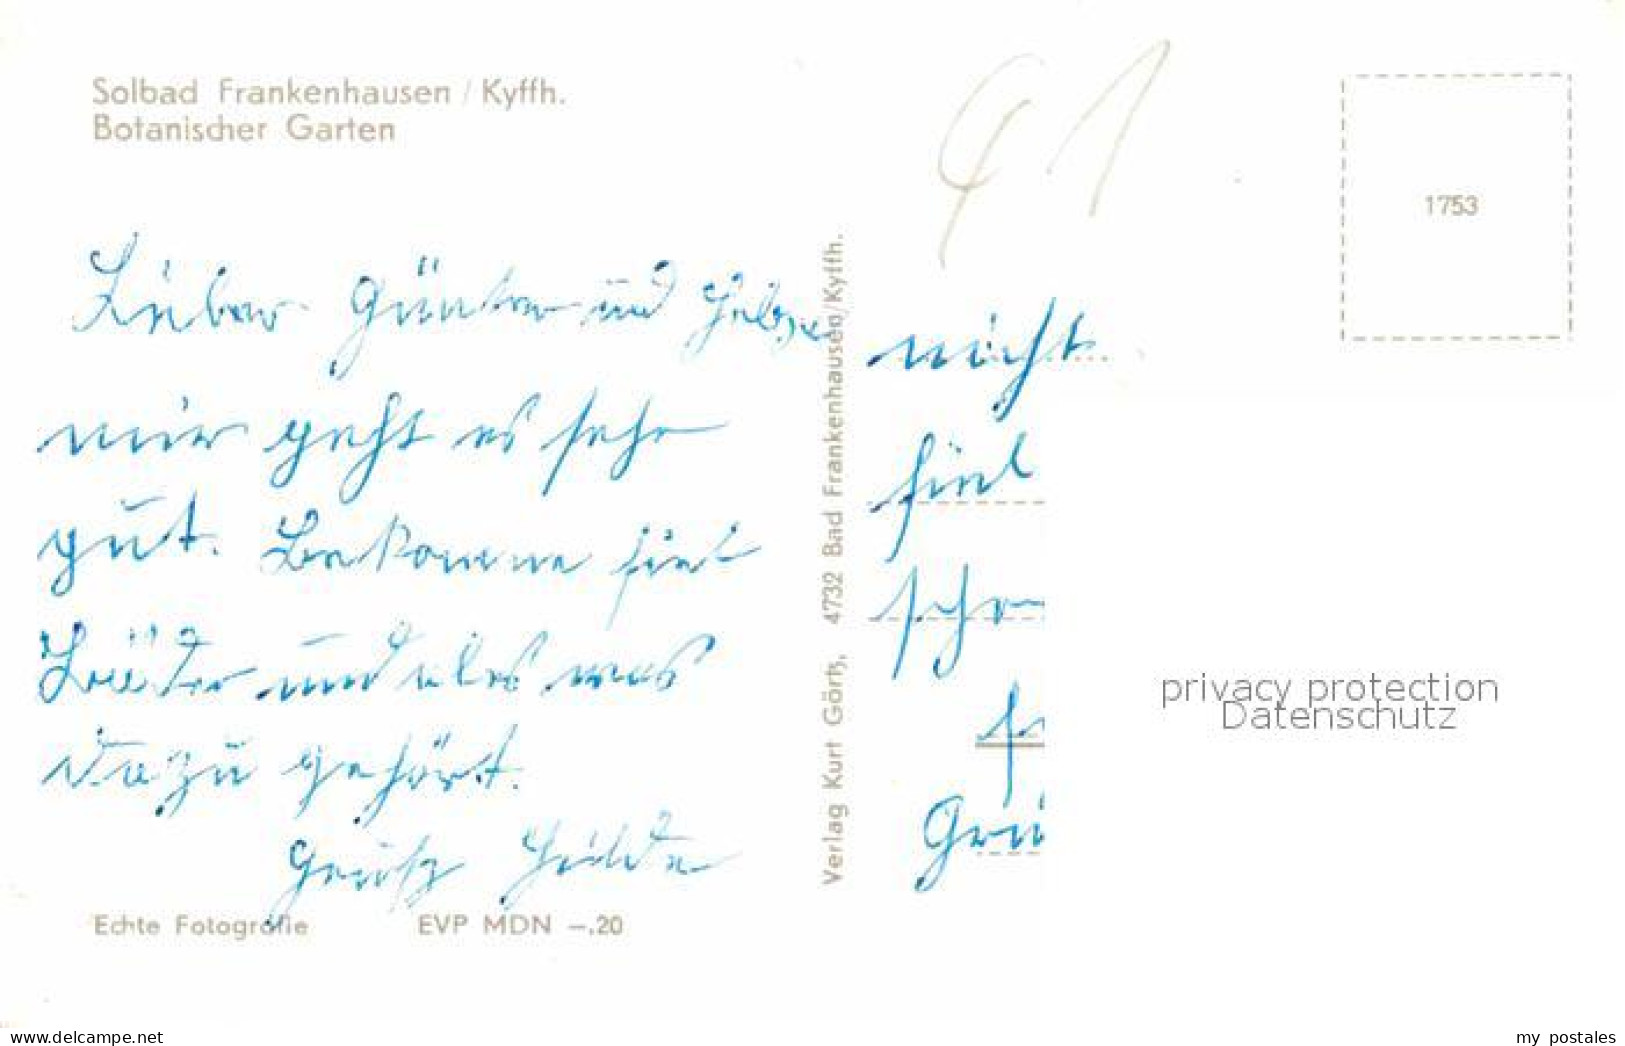 Solbad Frankenhausen / Kyffh.
Botanischer Garten
Lieber Günter und
mir geht es sehr
gut. Bekomme fiel
Bäder und alles was
dazu gehört.
Gruß Hilde
Echte Fotografie EVP MDN –.20
Verlag Kurt Görtz, 4732 Bad Frankenhausen/Kyffh.
41
1753
nicht
fiel
Grü
privacy protection
Datenschutz
www.delcampe.net
my_postales